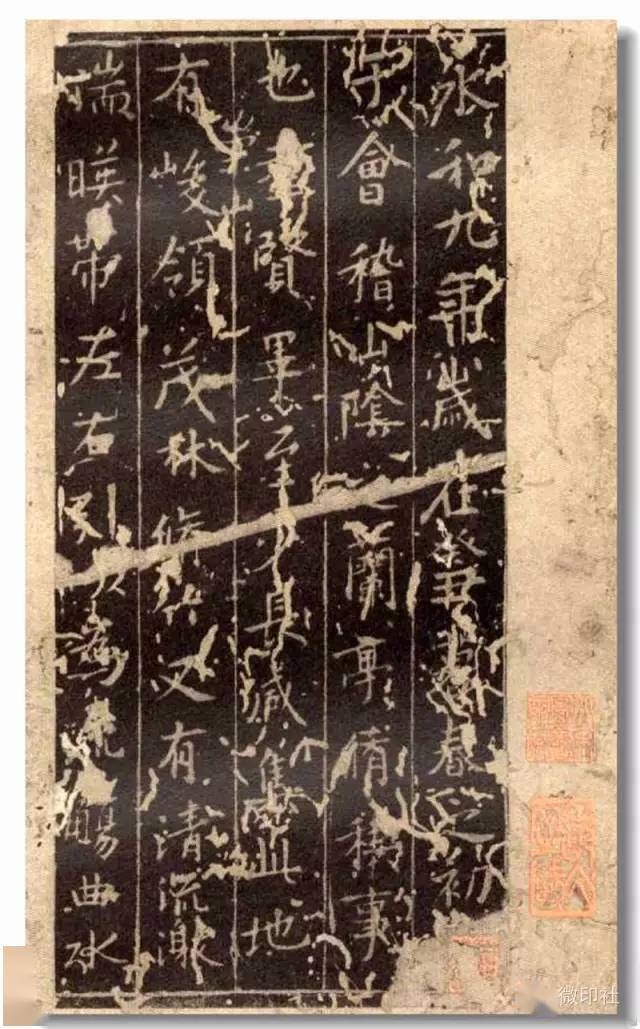 永和九年歲在癸丑暮春之初
于會稽山陰之蘭亭脩稧事
也羣賢畢至少長咸集此地
有崇山峻領茂林脩竹又有清流激
湍暎帶左右引以為流觴曲水
微印社